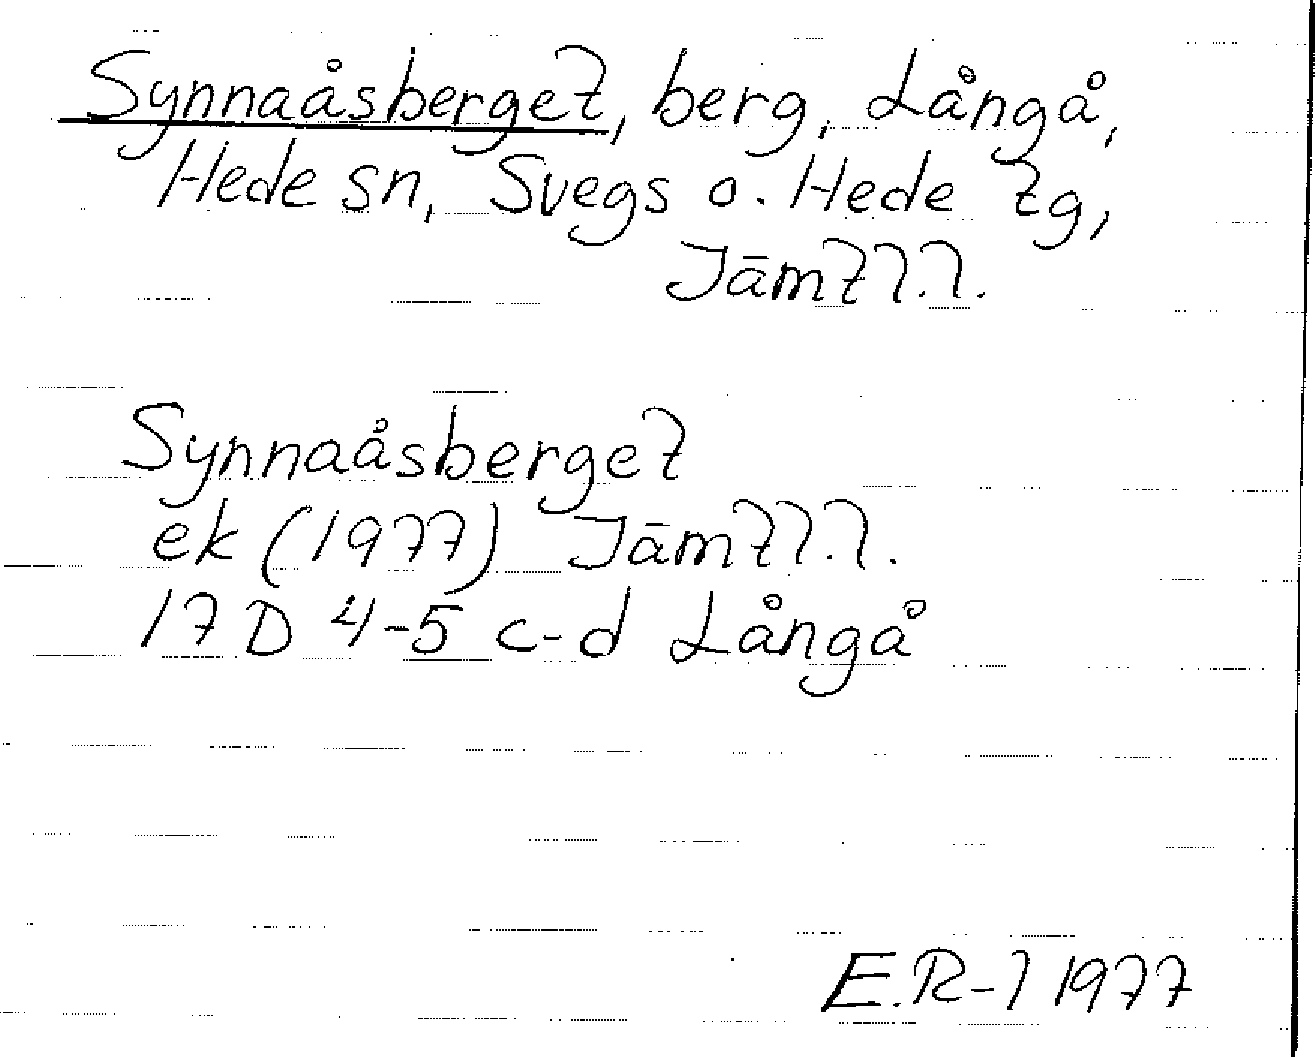 Synnaåsberget, berg, Långå,
Hede sn, Svegs o. Hede tg,
Jämtl.l.
Synnaåsberget
ek (1977) Jämtl.l.
17 D 4-5 c-d Långå
E.R-l 1977